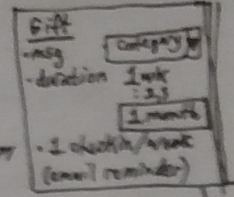 Gift
- msg
category
- duration 1 wk
: 2,3
1 month
- 1 checkin/week
(email reminder)